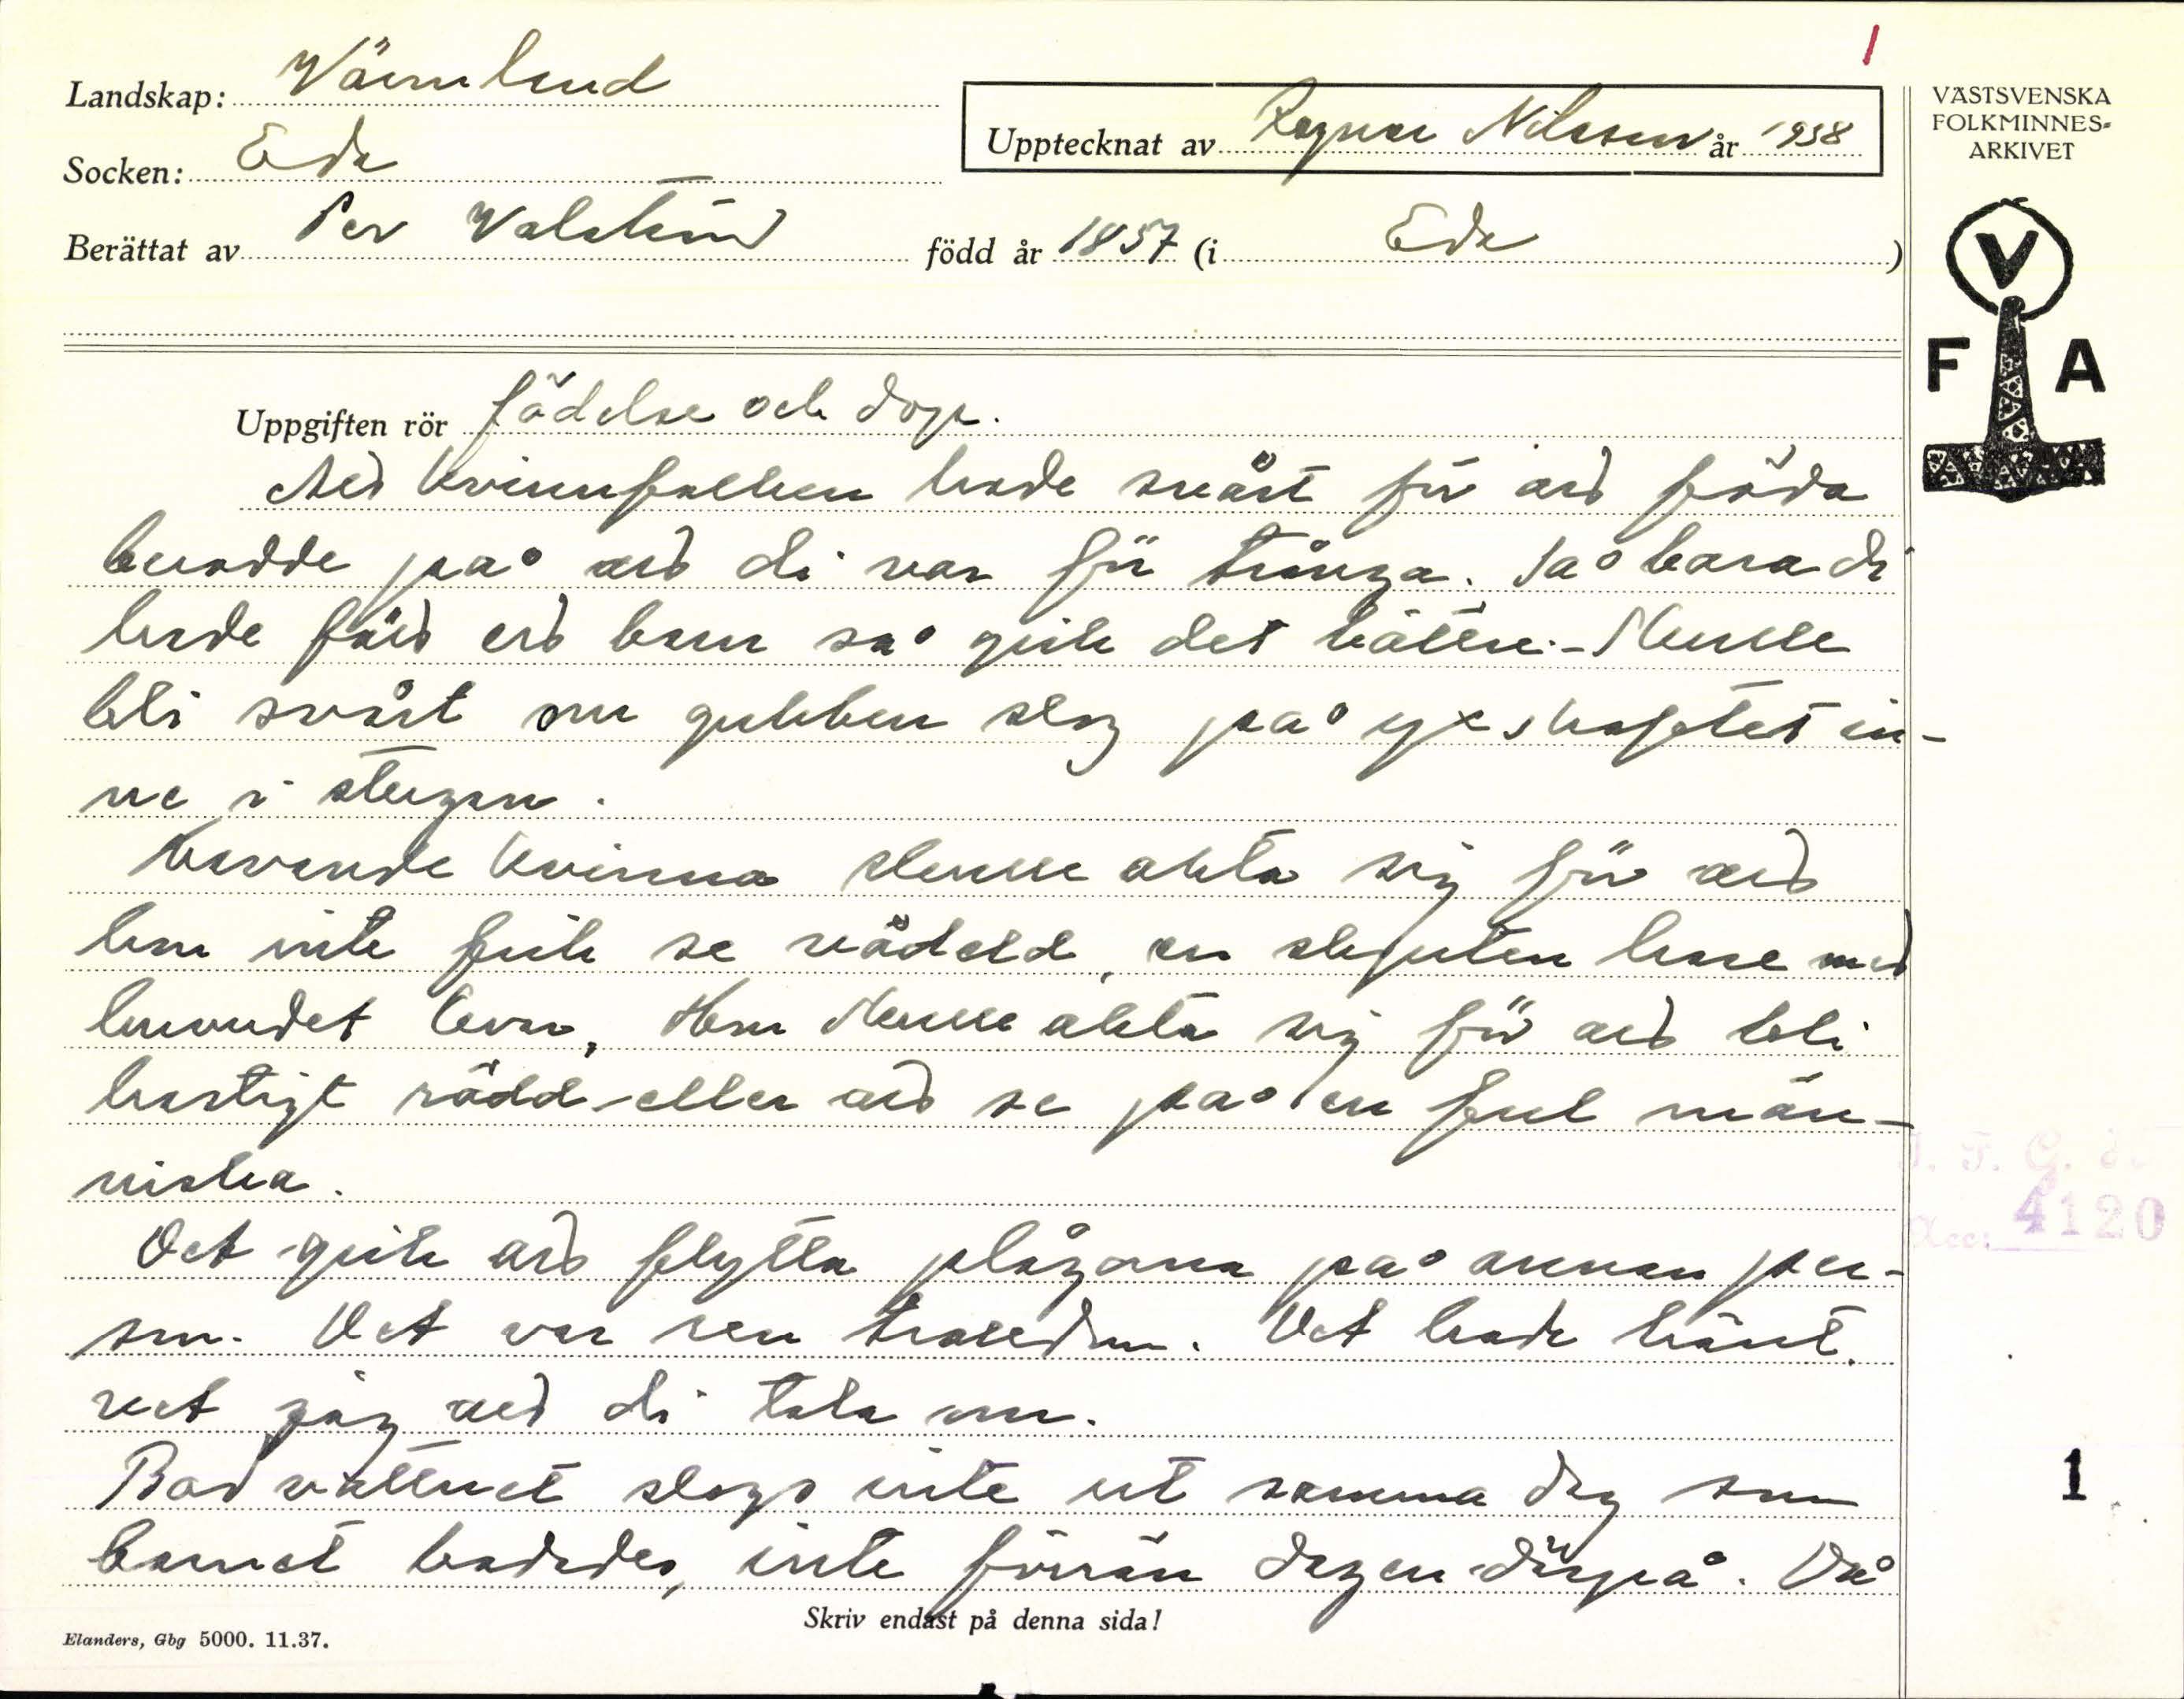 1
Landskap: Värmland
Socken: Eda
Upptecknat av Ragnar Nilsson år 1938
Berättat av Per född år 1857 (i Eda)
VÄSTSVENSKA
FOLKMINNES-
ARKIVET
V
F A
Uppgiften rör födelse och dop.
Att kvinnfolken hade svårt för att föda
berodde på att di var för trånga. Så bara di
hade fått ett barn så gick det bättre. - Skulle
bli svårt om gubben slog på yxskaftet in-
ne i stugan.
Havande kvinna skulle akta sig för att
hon inte fick se vådeld, en skjuten hare med
krunudet Hon skulle akta sig för att bli
hastigt rädd eller att se på en ful män-
niska.
Det gick att flytta plågorna på annan per-
son. Det var ren trolldom. Det hade hänt.
vet jag att di tala om.
Badvattnet slogs inte ut samma dag som
barnet badades, inte förrän dagen därpå. Då
I. F. G. H.
Acc: 4120
1
Skriv endast på denna sida!
Elanders, Gbg 5000. 11.37.